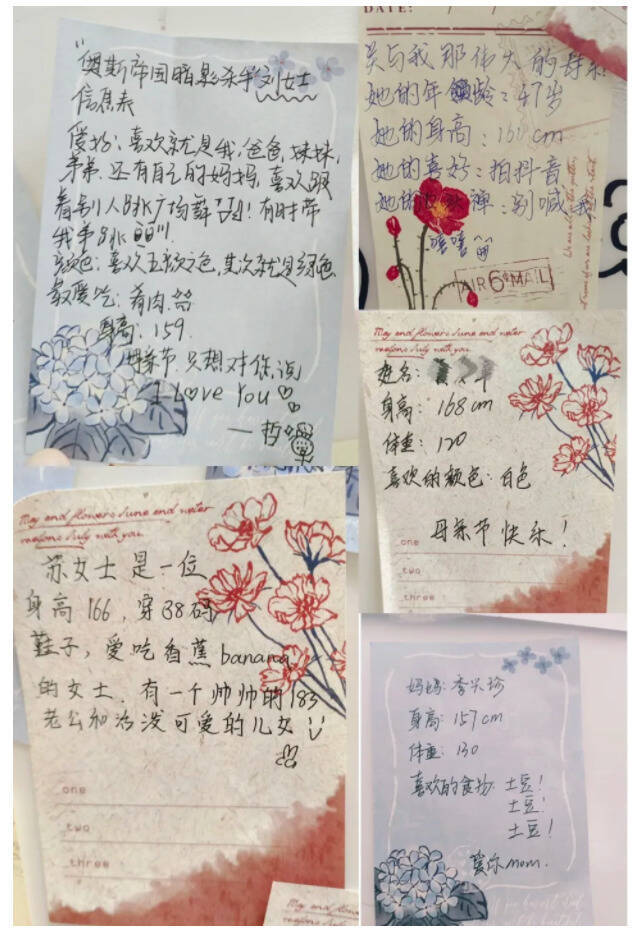 "奥斯帝国暗影杀手"刘女士
信息表
爱好：喜欢就是我，爸爸，妹妹，
弟弟，还有自己的妈妈，喜欢跟
着别人跳广场舞 有时带
我弟跳
颜色：喜欢五颜六色，其次就是绿色
最爱吃：肉
身高：159.
母亲节只想对你说
I Love You
DATE:
关与我那伟大的母亲
她的年龄：47岁
她的身高：160cm
她的喜好：拍抖音
她的禅：别喊我！
嘻嘻
AIR 6 MAIL
May end flowers June end water
reasons July with you
姓名：
身高：168cm
体重：120
喜欢的颜色：白色
母亲节快乐！
one
two
three
May end flowers June end water
reasons July with you
苏女士是一位
身高166，穿38码
鞋子，爱吃香蕉banana
的女士，有一个帅帅的183
老公和活泼可爱的儿女
one
two
three
May end flowers June end water
妈妈：李兴珍
身高：157cm
体重：130
喜欢的食物：土豆！
土豆！
土豆！
爱你mom.